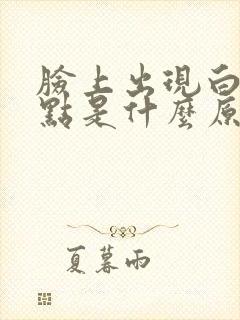 臉上出現白
點是什麼原
夏暮雨